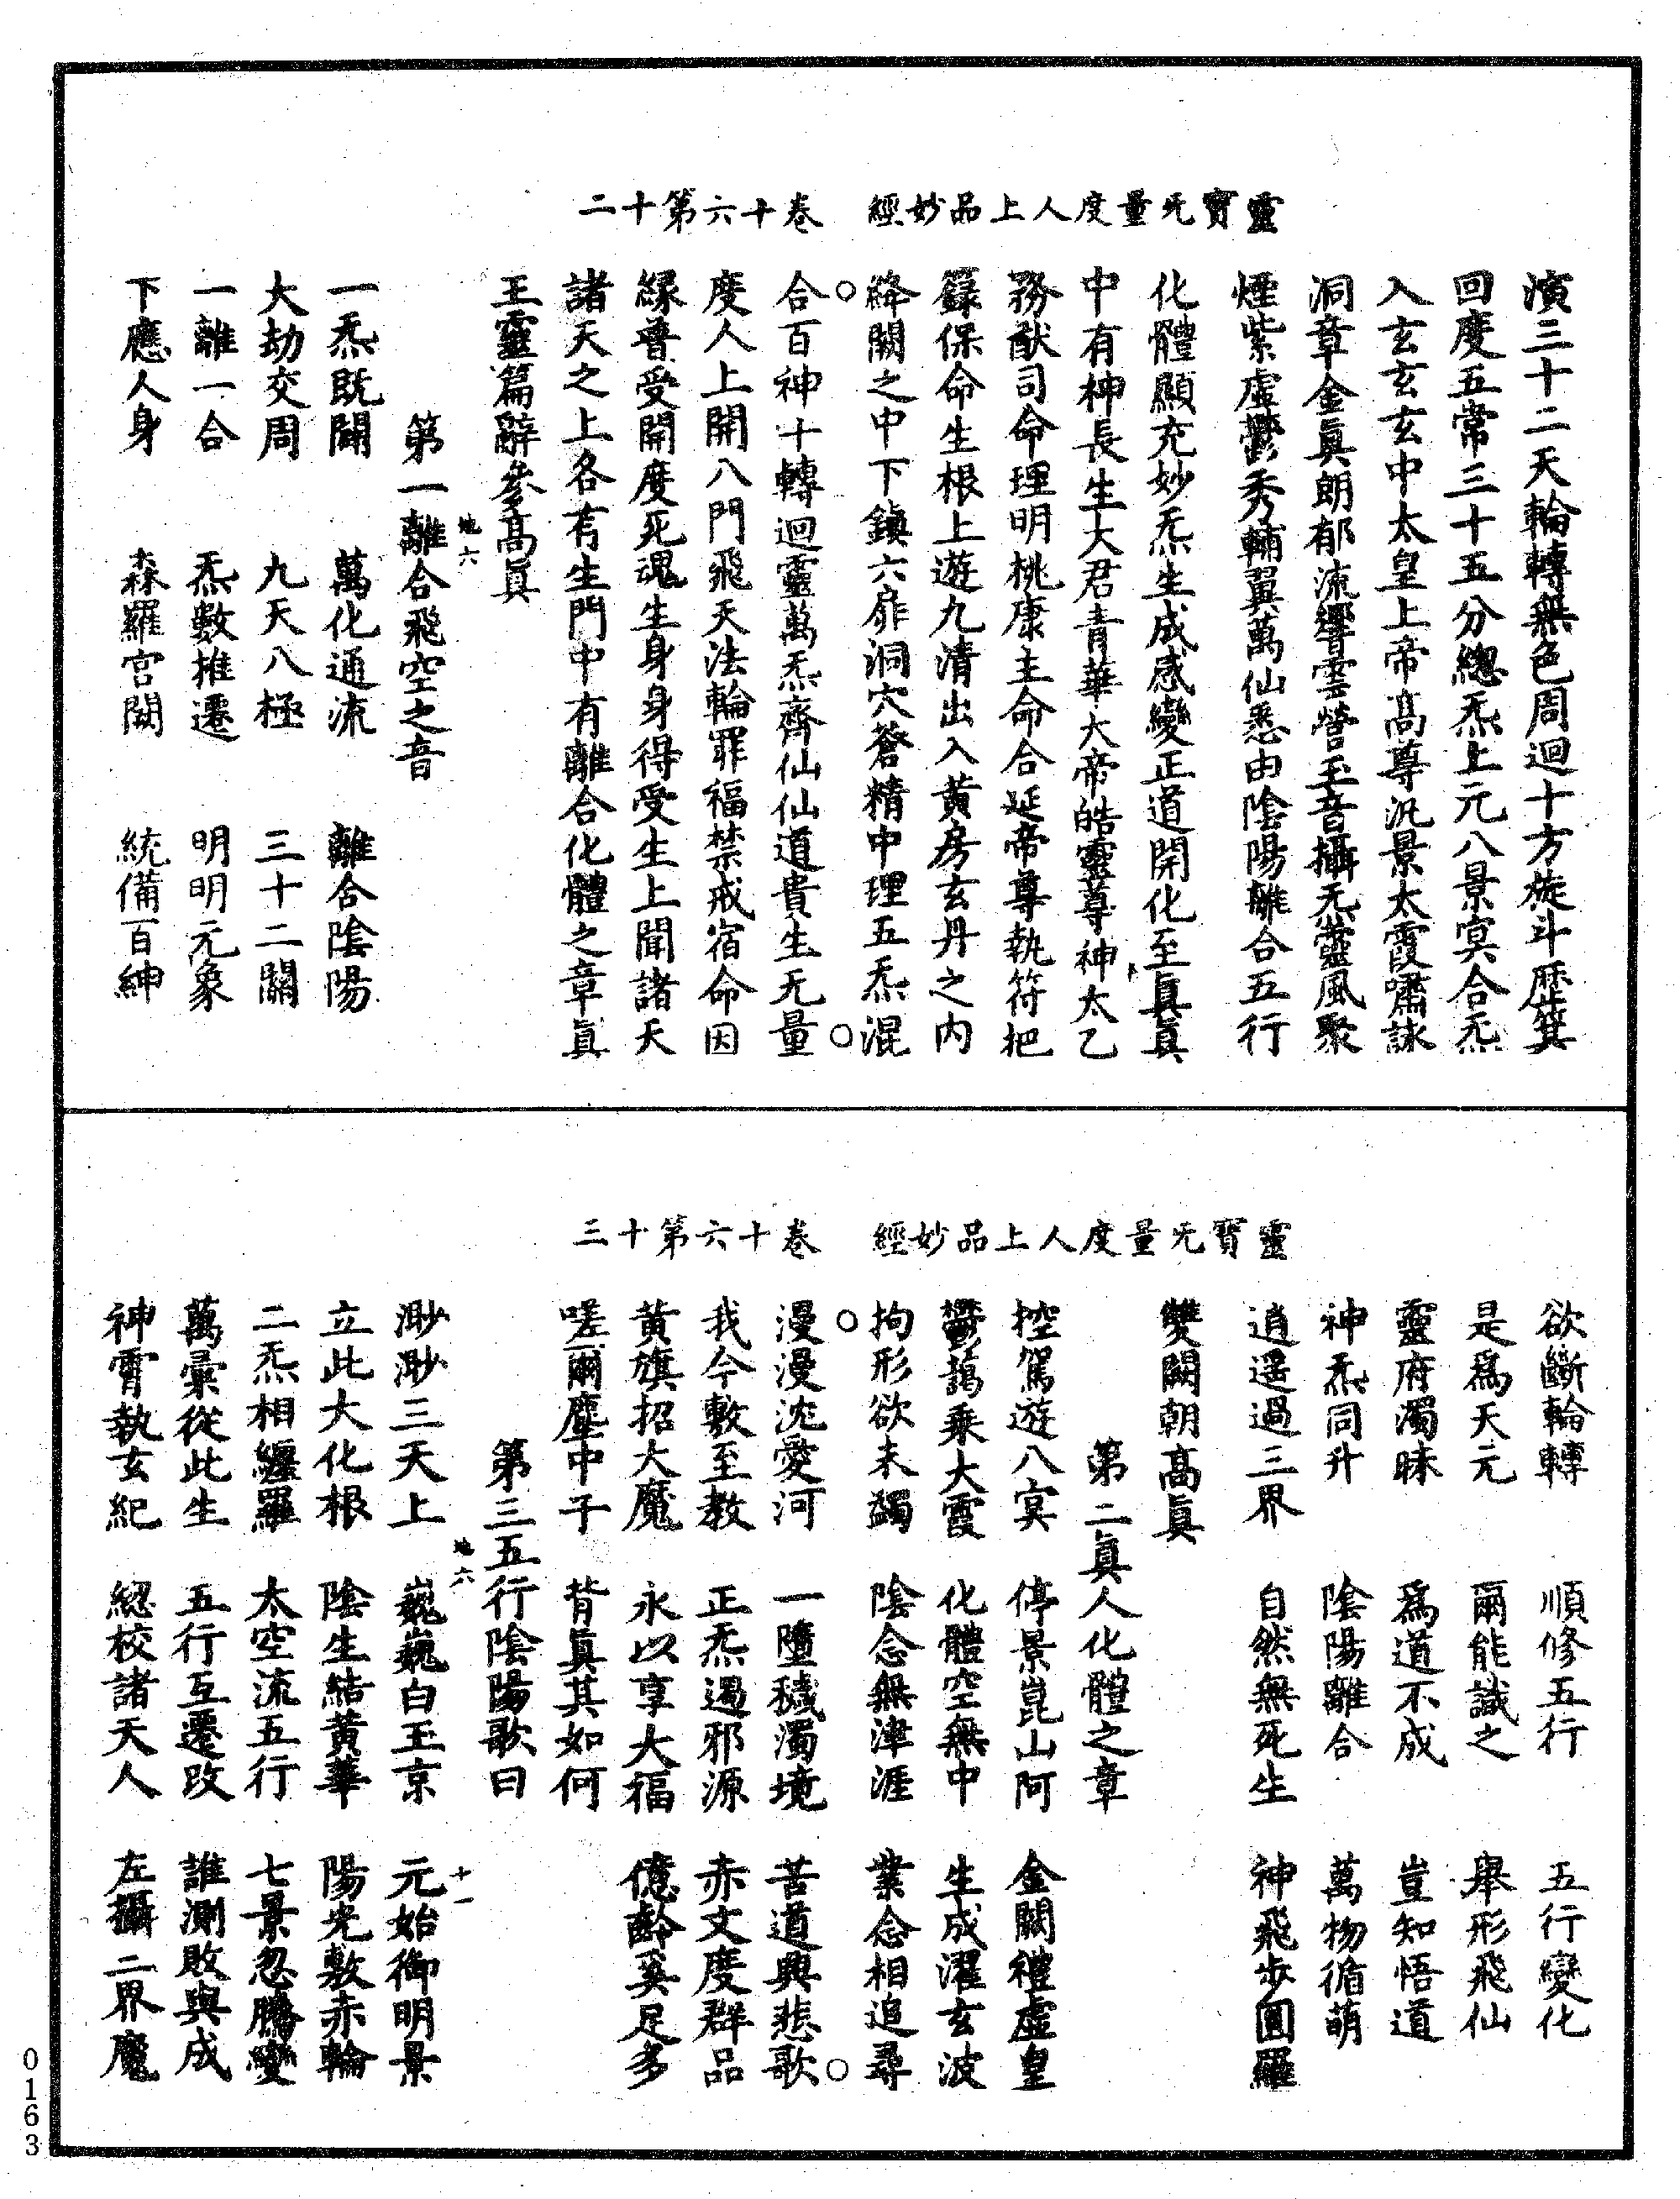 靈寶无量度人上品妙經　卷十六第十二
演三十二天輪轉無色周迴十方旋斗歷箕
回度五常三十五分總炁上元八景冥合炁
入玄玄玄中太皇上帝高尊汎景太霞嘯詠
洞章金眞朗郁流響雲營玉音攝炁靈風聚
煙紫虛鬱秀輔翼萬仙悉由陰陽離合五行
化體顯充妙炁生成感變正道開化至眞眞
中有神長生大君青華大帝皓靈尊神太乙
務猷司命理明桃康主命合延帝尊執符把
籙保命生根上遊九清出入黃房玄丹之內
絳闕之中下鎮六扉洞穴蒼精中理五炁混
合百神十轉迴靈萬炁齊仙仙道貴生无量
度人上開八門飛天法輪罪福禁戒宿命因
緣普受開度死魂生身身得受生上聞諸天
諸天之上各有生門中有離合化體之章眞
王靈篇辭參高眞
地六
第一離合飛空之音
一炁既開　萬化通流　離合陰陽
大劫交周　九天八極　三十二關
一離一合　炁數推遷　明明元象
下應人身　森羅宮闕　統備百紳
靈寶无量度人上品妙經　卷十六第十三
欲斷輪轉　順修五行　五行變化
是爲天元　爾能識之　舉形飛仙
靈府濁昧　爲道不成　豈知悟道
神炁同升　陰陽離合　萬物循萌
逍遥過三界　自然無死生　神飛步圓羅
雙闕朝高眞
第二眞人化體之章
控駕遊八冥　停景崑山阿　金闕禮虛皇
鬱藹乘大霞　化體空無中　生成濯玄波
拘形欲未蠲　陰念無津涯　業念相追尋
漫漫沈愛河　一墮穢濁境　苦道興悲歌
我今敷至教　正炁遏邪源　赤文度群品
黃旗招大魔　永以享大福　億齡奚足多
嗟爾塵中子　背眞其如何
第三五行陰陽歌曰
地六　十一
渺渺三天上　巍巍白玉京　元始御明景
立此大化根　陰生結黃華　陽光敷赤輪
二炁相纏羅　太空流五行　七景忽騰變
萬彙從此生　五行互遷改　誰測敗與成
神霄執玄紀　總校諸天人　左攝二界魔
0163